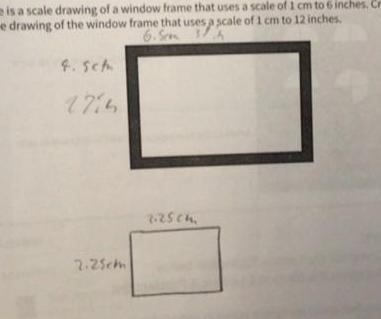 e is a scale drawing of a window frame that uses a scale of 1 cm to 6 inches. Cr
e drawing of the window frame that uses a scale of 1 cm to 12 inches.
6.5cm
4.5cm
2.25cm
2.25cm